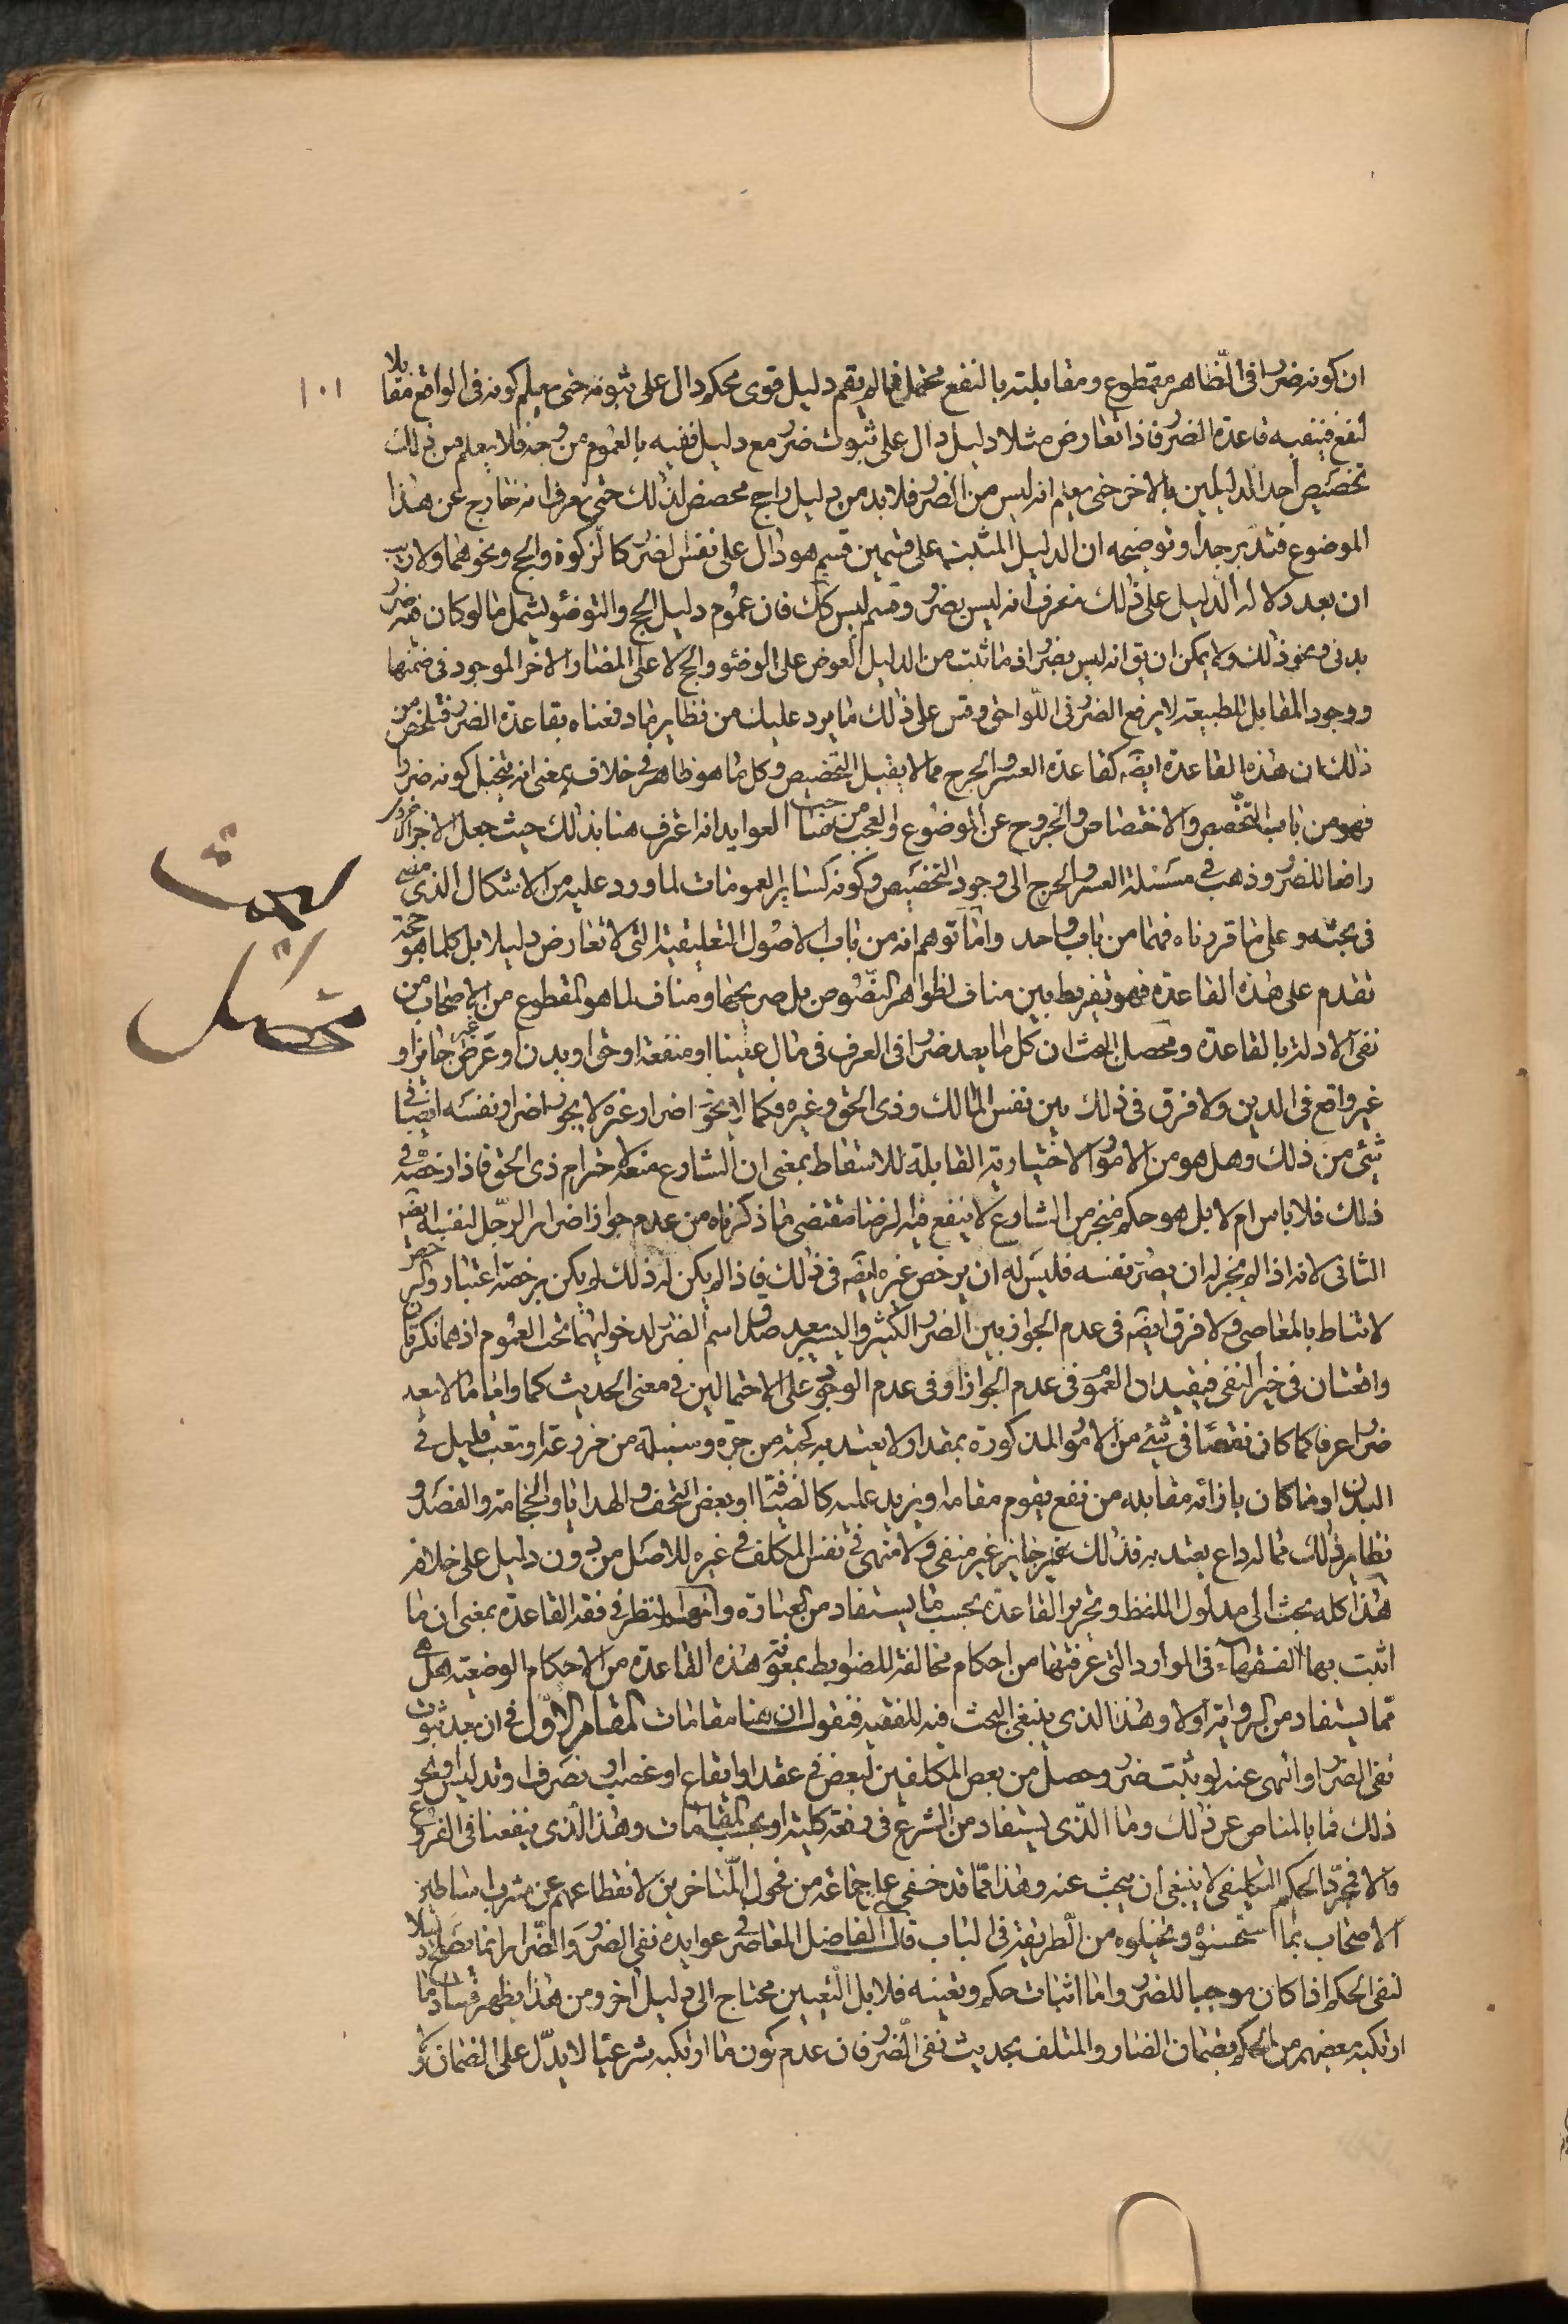 ١٠١
ان كونه ضررا فى الظاهر مقطوع ومقابلته بالنفع محتمل فما لم يقم دليل قوى محكم دال على ثبوته حتى يعلم كونه فى الواقع مقابلا
لنفع فينفيه قاعدة الضرر فاذا تعارض مثلا دليل دال على ثبوت ضرر مع دليل نفيه بالعموم من وجه فلا يعلم من ذلك
تخصيص أحد الدليلين بالاخر حتى يعلم انه ليس من الضرر فلا بد من دليل راجح مخصص لذلك حتى نعرف انه خارج عن هذا
الموضوع فتدبر جدا وتوضيحه ان الدليل المثبت على قسمين قسم هو دال على نفس الضرر كالزكوة والحج ونحوهما ولا ريب
ان بعد دلالة الدليل على ذلك نعرف انه ليس بضرر وقسم ليس كك فان عموم دليل الحج والتوضئو لشمل ما لو كان فيه ضرر
بدنى ونحو ذلك ولا يمكن ان يق انه ليس بضرر اذ ما ثبت من الدليل العوض على الوضوء والحج لا على المضار الاخر الموجود فى ضمنها
ووجود المقابل للطبيعة لا يرفع الضرر فى اللواحق وقس على ذلك ما يرد عليك من نظاير ما دفعناه بقاعدة الضرر فتلخص من
ذلك ان هذه القاعدة ايضه كقاعدة العسر والحرج مما لا يقبل التخصيص وكل ما هو ظاهر فى خلافه بمعنى انه يتخيل كونه ضررا
فهو من باب التخصص والاختصاص والخروج عن الموضوع والعجب من صاحب العوايد انه اعترف هنا بذلك حيث جعل الاجر الاخروى
رافعا للضرر وذهب فى مسئلة العسر والحرج الى وجود التخصيص وكونه كساير العمومات لما ورد عليه من الاشكال الذى مضى
فى بحثه وعلى ما قررناه فهما من باب واحد واما توهم انه من باب الاصول التعليقية التى لا تعارض دليلا بل كلما هو حجة
تقدم على هذه القاعدة فهو تفريط بين مناف لظواهر النصوص بل صريحها ومناف لما هو المقطوع من الاصحاب من
نفى الادلة بالقاعدة ومحصل البحث ان كل ما يعد ضررا فى العرف فى مال عينا او منفعة او حق او بدن او عرض غير جائز او
غير واقع فى الدين ولا فرق فى ذلك بين نفس المالك وذى الحق وغيره فكما لا يجوز اضرار غيره لا يجوز اضرار نفسه ايضا فى
شئ من ذلك وهل هو من الامور الاختيارية القابلة للاسقاط بمعنى ان الشارع منعه لاحترام ذى الحق فاذا رخصه فى
ذلك فلا باس ام لا بل هو حكم منجز من الشارع لا ينفع فيه الرضا مقتضى ما ذكرناه من عدم جواز اضرار الرجل لنفسه ايضه
الثانى لانه اذا لم يجز له ان يضر بنفسه فليس له ان يرخص غيره ايضه فى ذلك فاذا لم يكن له ذلك لم يكن برخصته اعتبار والرخص
لا تناط بالمعاصى ولا فرق ايضه فى عدم الجواز بين الضرر الكثير واليسير بعد صدق اسم الضرر لدخولهما تحت العموم اذ هما نكرتان
واقعتان فى خبر النفى فيفيدان العموم فى عدم الجواز او فى عدم الوجود على الاحتمالين فى معنى الحديث كما واما ما لا يعد
ضررا عرفا كما كان نقصا فى شئ من الامور المذكورة بمقدار لا يعتد به كحبة من حرة وسنبلة من مزرعة او تعب قليل فى
البدن او ما كان بازائه مقابله من نفع يقوم مقامه او يزيد عليه كالضيافة او بعض التحف والهدايا والحجامة والفصد و
نظاير ذلك مما له داع يعتد به فذلك غير جايز غير منفى ولا منهى فى نفس المكلف فى غيره للاصل من دون دليل على خلافه
هذا كله بحث الى مدلول اللفظ وتحرير القاعدة بحسب ما يستفاد من العبارة وانما النظر فى فقه القاعدة بمعنى ان ما
اثبت بها الفقهاء فى الموارد التى عرفتها من احكام مخالفة للضوابط بمعونة هذه القاعدة من الاحكام الوضعية هل هى
مما يستفاد من الرواية او لا وهذا الذى ينبغى البحث فيه للفقيه فنقول ان هنا مقامات المقام الاول فى ان بعد ثبوت
نفى الضرر او النهى عنه لو ثبت ضرر وحصل من بعض المكلفين لبعض فى عقد او ايقاع او غصب او تصرف او تدليس او نحو
ذلك فما بالمناص عن ذلك وما الذى يستفاد من الشرع فى رفعه كلية او بحسب المقامات وهذا الذى ينفعنا فى الفروع
والا فمجرد الحكم التكليفى لا ينبغى أن يبحث عنه وهذا مما قد خفى على جماعة من فحول المتاخرين لانقطاعهم عن مشرب اساطين
الاصحاب بما استحسنوه وتخيلوه من الطريقة فى الباب قال الفاضل المعاصر فى عوايده نفى الضرر والضرار انما يصلح دليلا
لنفى الحكم اذا كان موجبا للضرر واما اثبات حكم وتعيينه فلا بل التعيين محتاج الى دليل اخر ومن هذا يظهر فساد ما
ارتكبه بعضهم من الحكم بضمان الضار والمتلف بحديث نفى الضرر فان عدم كون ما ارتكبه شرعيا لا يدل على الضمان و